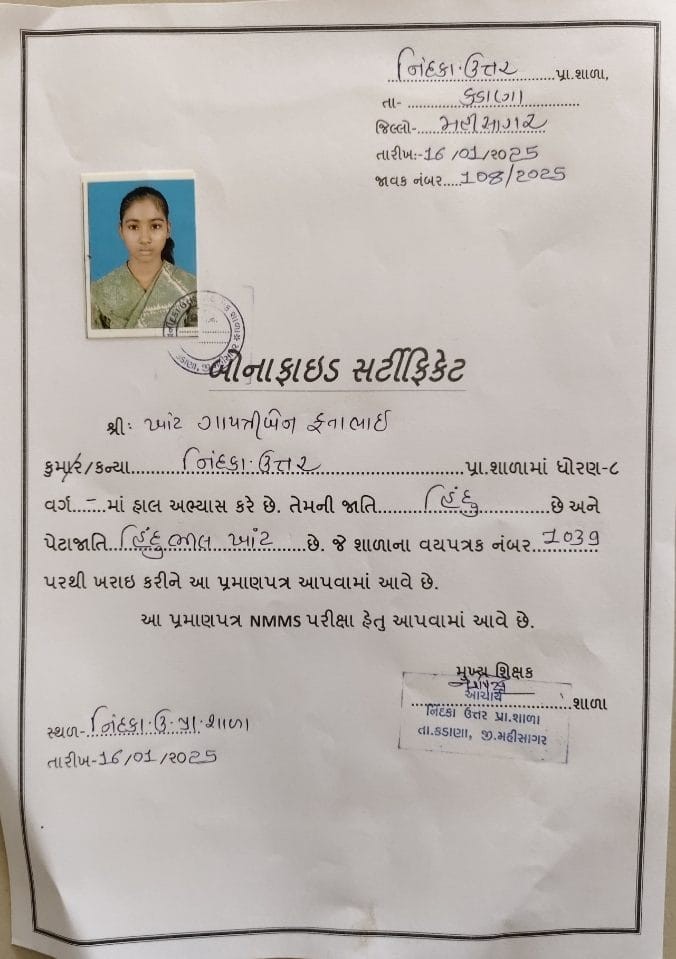 નિંદકા ઉત્તર પ્રા.શાળા,
તા- કડાણા
જિલ્લો- મહીસાગર
તારીખ:-16/01/2025
જાવક નંબર.....108/2025
બોનાફાઇડ સર્ટીફિકેટ
શ્રી: ખાંટ ગાયત્રીબેન ફનાભાઈ
કુમાર/કન્યા નિંદકા ઉત્તર પ્રા.શાળામાં ધોરણ-૮
વર્ગ - માં હાલ અભ્યાસ કરે છે. તેમની જાતિ હિંદુ છે અને
પેટાજાતિ હિંદુ ભીલ ખાંટ છે. જે શાળાના વયપત્રક નંબર 1039
પરથી ખરાઇ કરીને આ પ્રમાણપત્ર આપવામાં આવે છે.
આ પ્રમાણપત્ર NMMS પરીક્ષા હેતુ આપવામાં આવે છે.
મુખ્ય શિક્ષક
આચાર્ય
શાળા
નિંદકા ઉત્તર પ્રા.શાળા
તા.કડાણા, જી.મહીસાગર
સ્થળ- નિંદકા ઉ. પ્રા. શાળા
તારીખ-16/01/2025